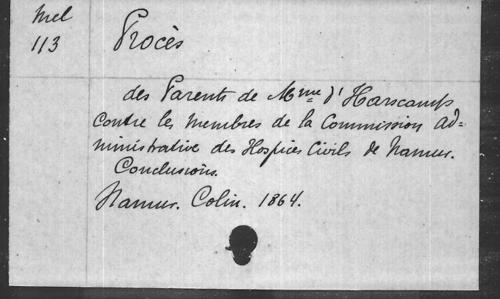 Mel
113
Procès
des Parents de Mme d'Harscamp
contre les membres de la Commission ad=
ministrative des Hospices Civils de Namur.
Conclusions.
Namur. Colin. 1864.